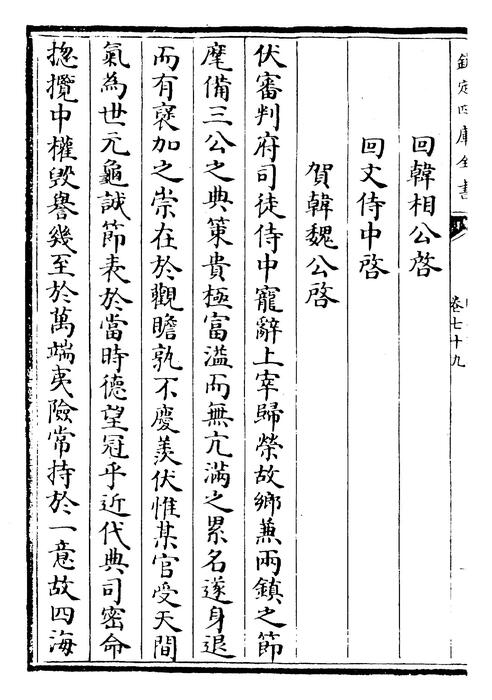 欽定四庫全書
卷七十九
回韓相公啓
回文侍中啓
賀韓魏公啓
伏審判府司徒侍中寵辭上宰歸榮故鄉兼兩鎮之節
麾備三公之典策貴極富溢而無亢滿之累名遂身退
而有褒加之崇在於觀瞻孰不慶羡伏惟某官受天間
氣為世元龜誠節表於當時德望冠乎近代典司密命
揔攬中權毀譽幾至於萬端夷險常持於一意故四海